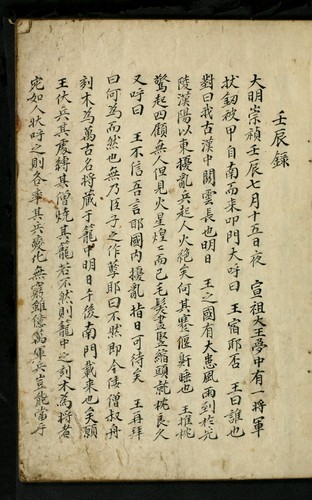 壬辰錄
大明崇禎壬辰七月十五日夜 宣祖大王夢中有一將軍
杖釼被甲自南而來叩門大呼曰 王宿耶否 王曰誰也
對曰我古漢中關雲長也明日 王之國有大患風雨到於光
陵漢陽以東擾亂兵起人火絶矣何其寢偃鼾睡也 王推枕
驚起四顧無人但見火星煌〻而已毛髮盡竪縮頭就枕良久
又呼曰 王不信吾言耶國內擾亂指日可待矣 王再拜
曰何為而然也無乃臣子之作孽耶曰不然即今倭僧叔舟
刻木為萬古名將藏于籠中明日午後南門載來也矣願
王伏兵其處縛其僧燒其籠若不然則籠中之刻木為將者
宛如人狀呼之則各率其兵變化無窮雖億萬軍兵豈能當乎